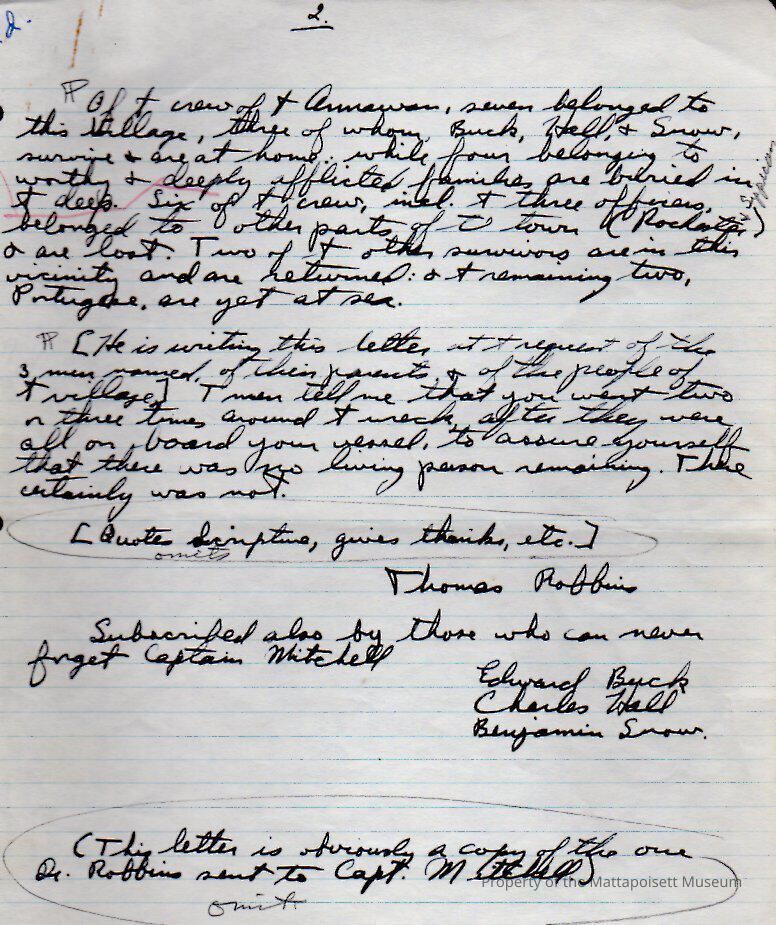 2.
¶ Of t crew of t Annawan, seven belonged to
this Village, three of whom, Buck, Hall, & Snow,
survive & are at home, while four belonging to
worthy & deeply afflicted families are buried in
t deep. Six of t crew, incl. t three officers,
belonged to other parts of t town (Rochester)
& are lost. Two of t other survivors are in this
vicinity and are returned: & t remaining two,
Portugese, are yet at sea.
¶ [He is writing this letter at t request of the
3 men named, of their parents & of the people of
t village] T men tell me that you went two
or three times around t wreck, after they were
all on board your vessel, to assure yourself
that there was no living person remaining. There
certainly was not.
[Quotes Scripture, gives thanks, etc.]
omit
Thomas Robbins
Subscribed also by those who can never
forget Captain Mitchell
Edward Buck
Charles Hall
Benjamin Snow.
(This letter is obviously a copy of the one
Dr. Robbins sent to Capt. Mitchell)
omit
Property of the Mattapoisett Museum